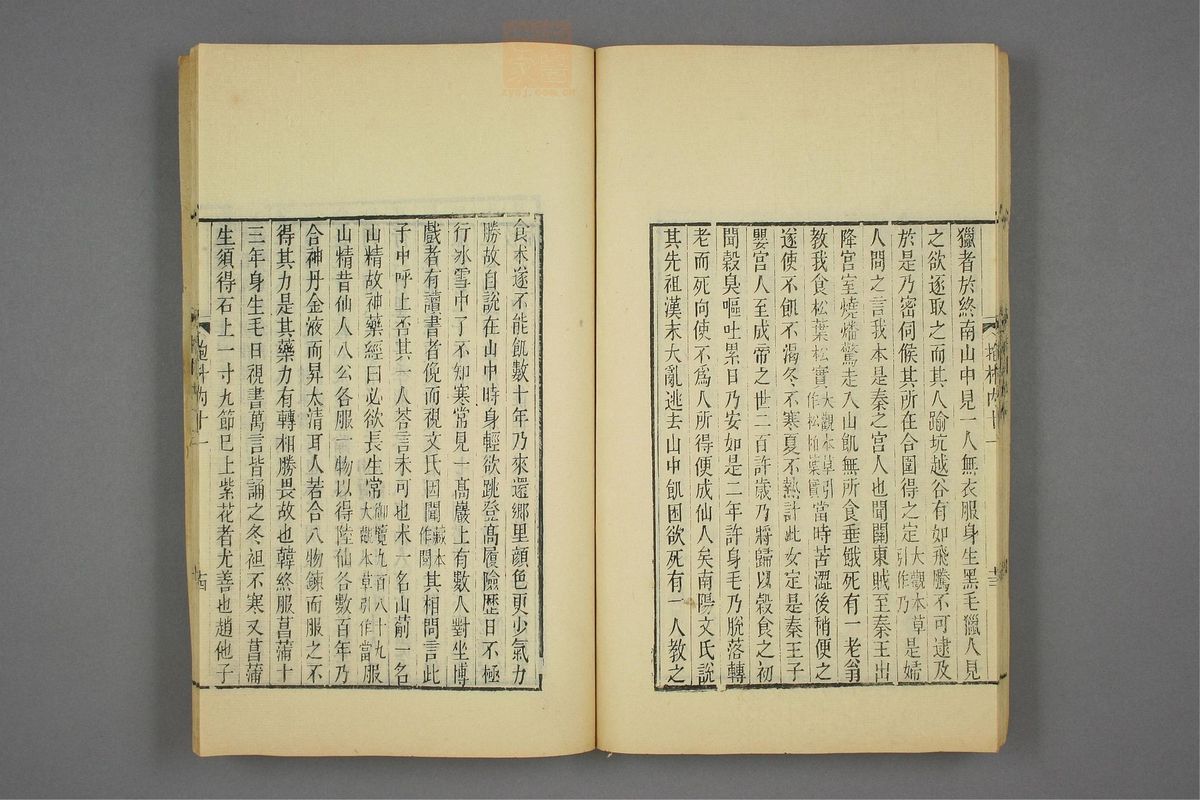 獵者於終南山中見一人無衣服身生黑毛獵人見
之欲逐取之而其人踰坑越谷有如飛騰不可逮及
於是乃密伺候其所在合圍得之定大觀本草引作乃是婦
人問之言我本是秦之宮人也聞關東賊至秦王出
降宮室燒燔驚走入山飢無所食垂餓死有一老翁
教我食松葉松實大觀本草引作松柏葉實當時苦澀後稍便之
遂使不飢不渴冬不寒夏不熱計此女定是秦王子
嬰宮人至成帝之世二百許歲乃將歸以穀食之初
聞穀臭嘔吐累日乃安如是二年許身毛乃脫落轉
老而死向使不為人所得便成仙人矣南陽文氏說
其先祖漢末大亂逃去山中飢困欲死有一人教之
食朮遂不能飢數十年乃來還鄉里顏色更少氣力
勝故自說在山中時身輕欲跳登高履險歷日不極
行冰雪中了不知寒常見一高巖上有數人對坐博
戲者有讀書者俛而視文氏因聞藏本作問其相問言此
子中呼上否其一人荅言未可也朮一名山薊一名
山精故神藥經曰必欲長生常御覽九百八十九大觀本草引作當服
山精昔仙人八公各服一物以得陸仙各數百年乃
合神丹金液而昇太清耳人若合八物鍊而服之不
得其力是其藥力有轉相勝畏故也韓終服菖蒲十
三年身生毛日視書萬言皆誦之冬袒不寒又菖蒲
生須得石上一寸九節已上紫花者尤善也趙他子